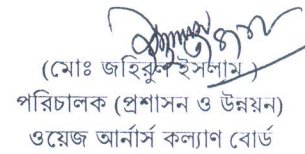 (মোঃ জহিরুল ইসলাম)
পরিচালক (প্রশাসন ও উন্নয়ন)
ওয়েজ আর্নার্স কল্যাণ বোর্ড